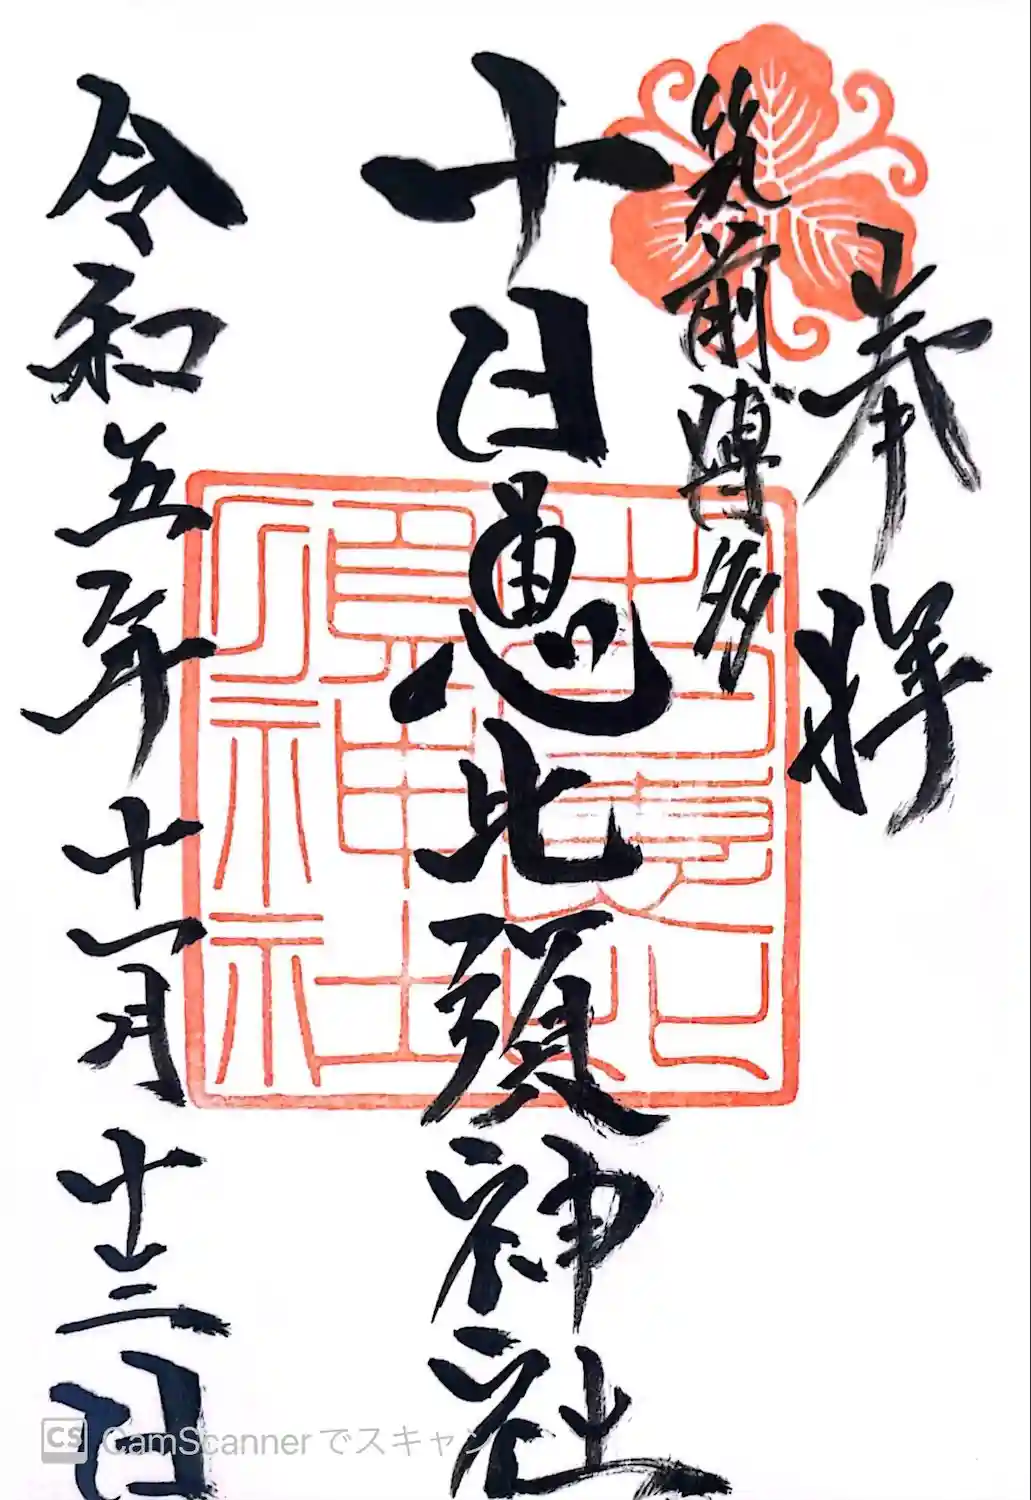 奉拝
筑前博多
十日恵比須神社
令和五年十一月十三日
十日恵比須神社
CS CamScanner でスキャン